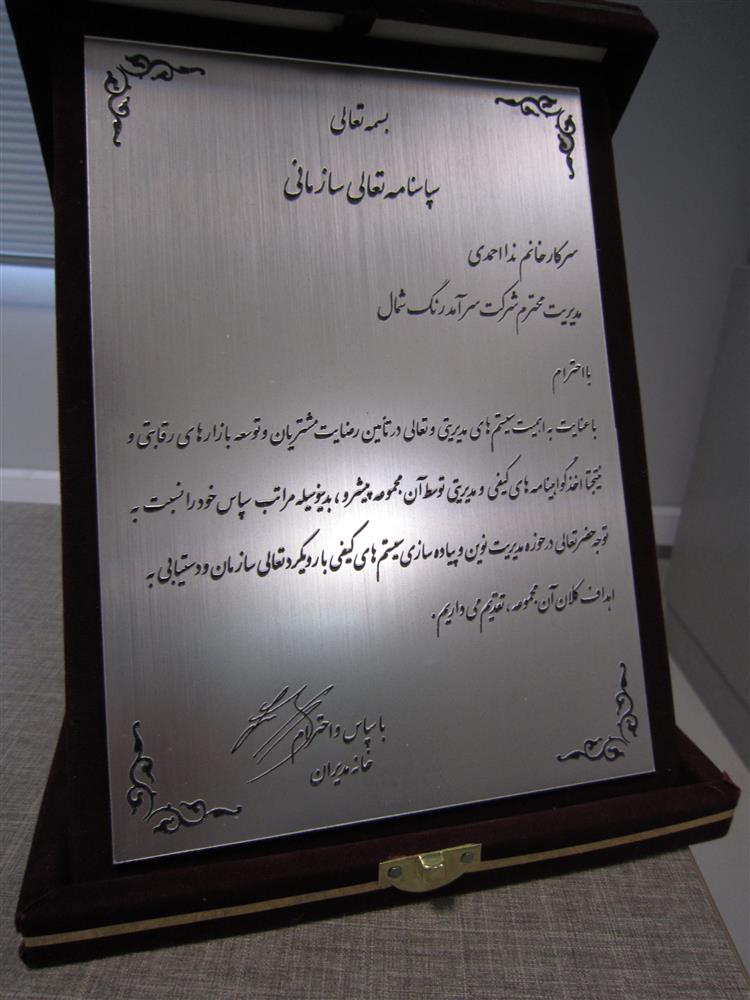 بسمه تعالی
سپاسنامه تعالی سازمانی
سرکار خانم ندا احمدی
مدیریت محترم شرکت سرآمد رنگ شمال
با احترام
با عنایت به اهمیت سیستم های مدیریتی و تعالی در تأمین رضایت مشتریان و توسعه بازارهای رقابتی و
نتیجتاً اخذ گواهینامه های کیفی و مدیریتی توسط آن مجموعه پیشرو، بدینوسیله مراتب سپاس خود را نسبت به
توجه حضرتعالی در حوزه مدیریت نوین و پیاده سازی سیستم های کیفی با رویکرد تعالی سازمان و دستیابی به
اهداف کلان آن مجموعه، تقدیم می داریم.
با سپاس و احترام
خانه مدیران